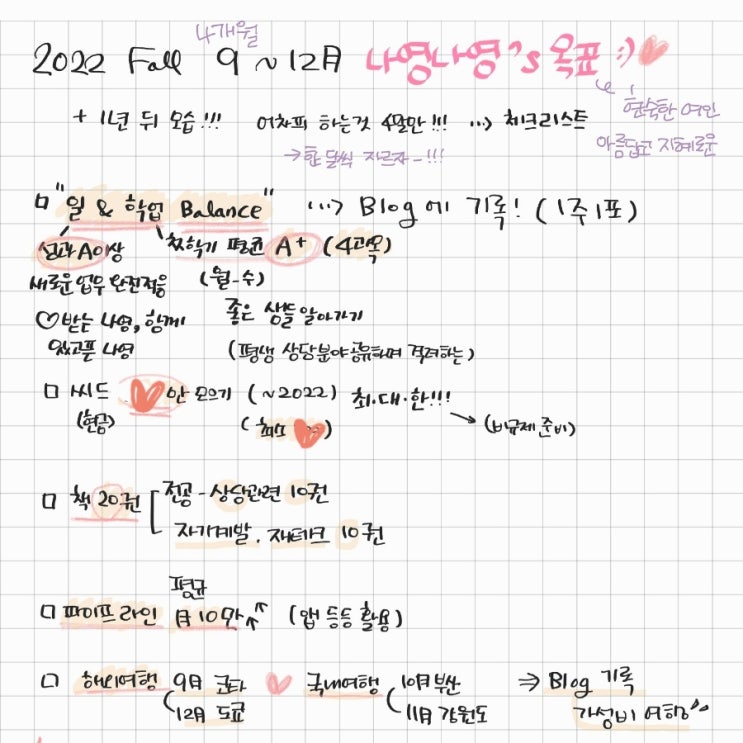 4개월
2022 Fall 9~12月 나영나영's 목표 :)
현숙한 여인
아름답고 지혜로운
+ 1년 뒤 모습!!! 어차피 하는것 4달만!!! ...> 체크리스트
→ 한 달씩 자르자-!!!
"일 & 학업 Balance" ...> Blog에 기록! (1주1포)
성과 A이상 첫학기 평균 A+ (4과목)
새로운 업무 완전적응 (월-수)
♡받는 나영, 함께 좋은 샘들 알아가기
있고픈 나영 (평생 상담분야 공유하며 격려하는)
씨드 만 모으기 (~2022) 최·대·한!!!
(현금) (최소 ) (비규제 준비)
책 20권 전공 - 상담관련 10권
자기계발, 재테크 10권
평균
파이프라인 月10만↑ (앱 등등 활용)
해외여행 9月 코타 국내여행 10月 부산 ⇒ Blog 기록
12月 도쿄 11月 강원도 가성비 여행